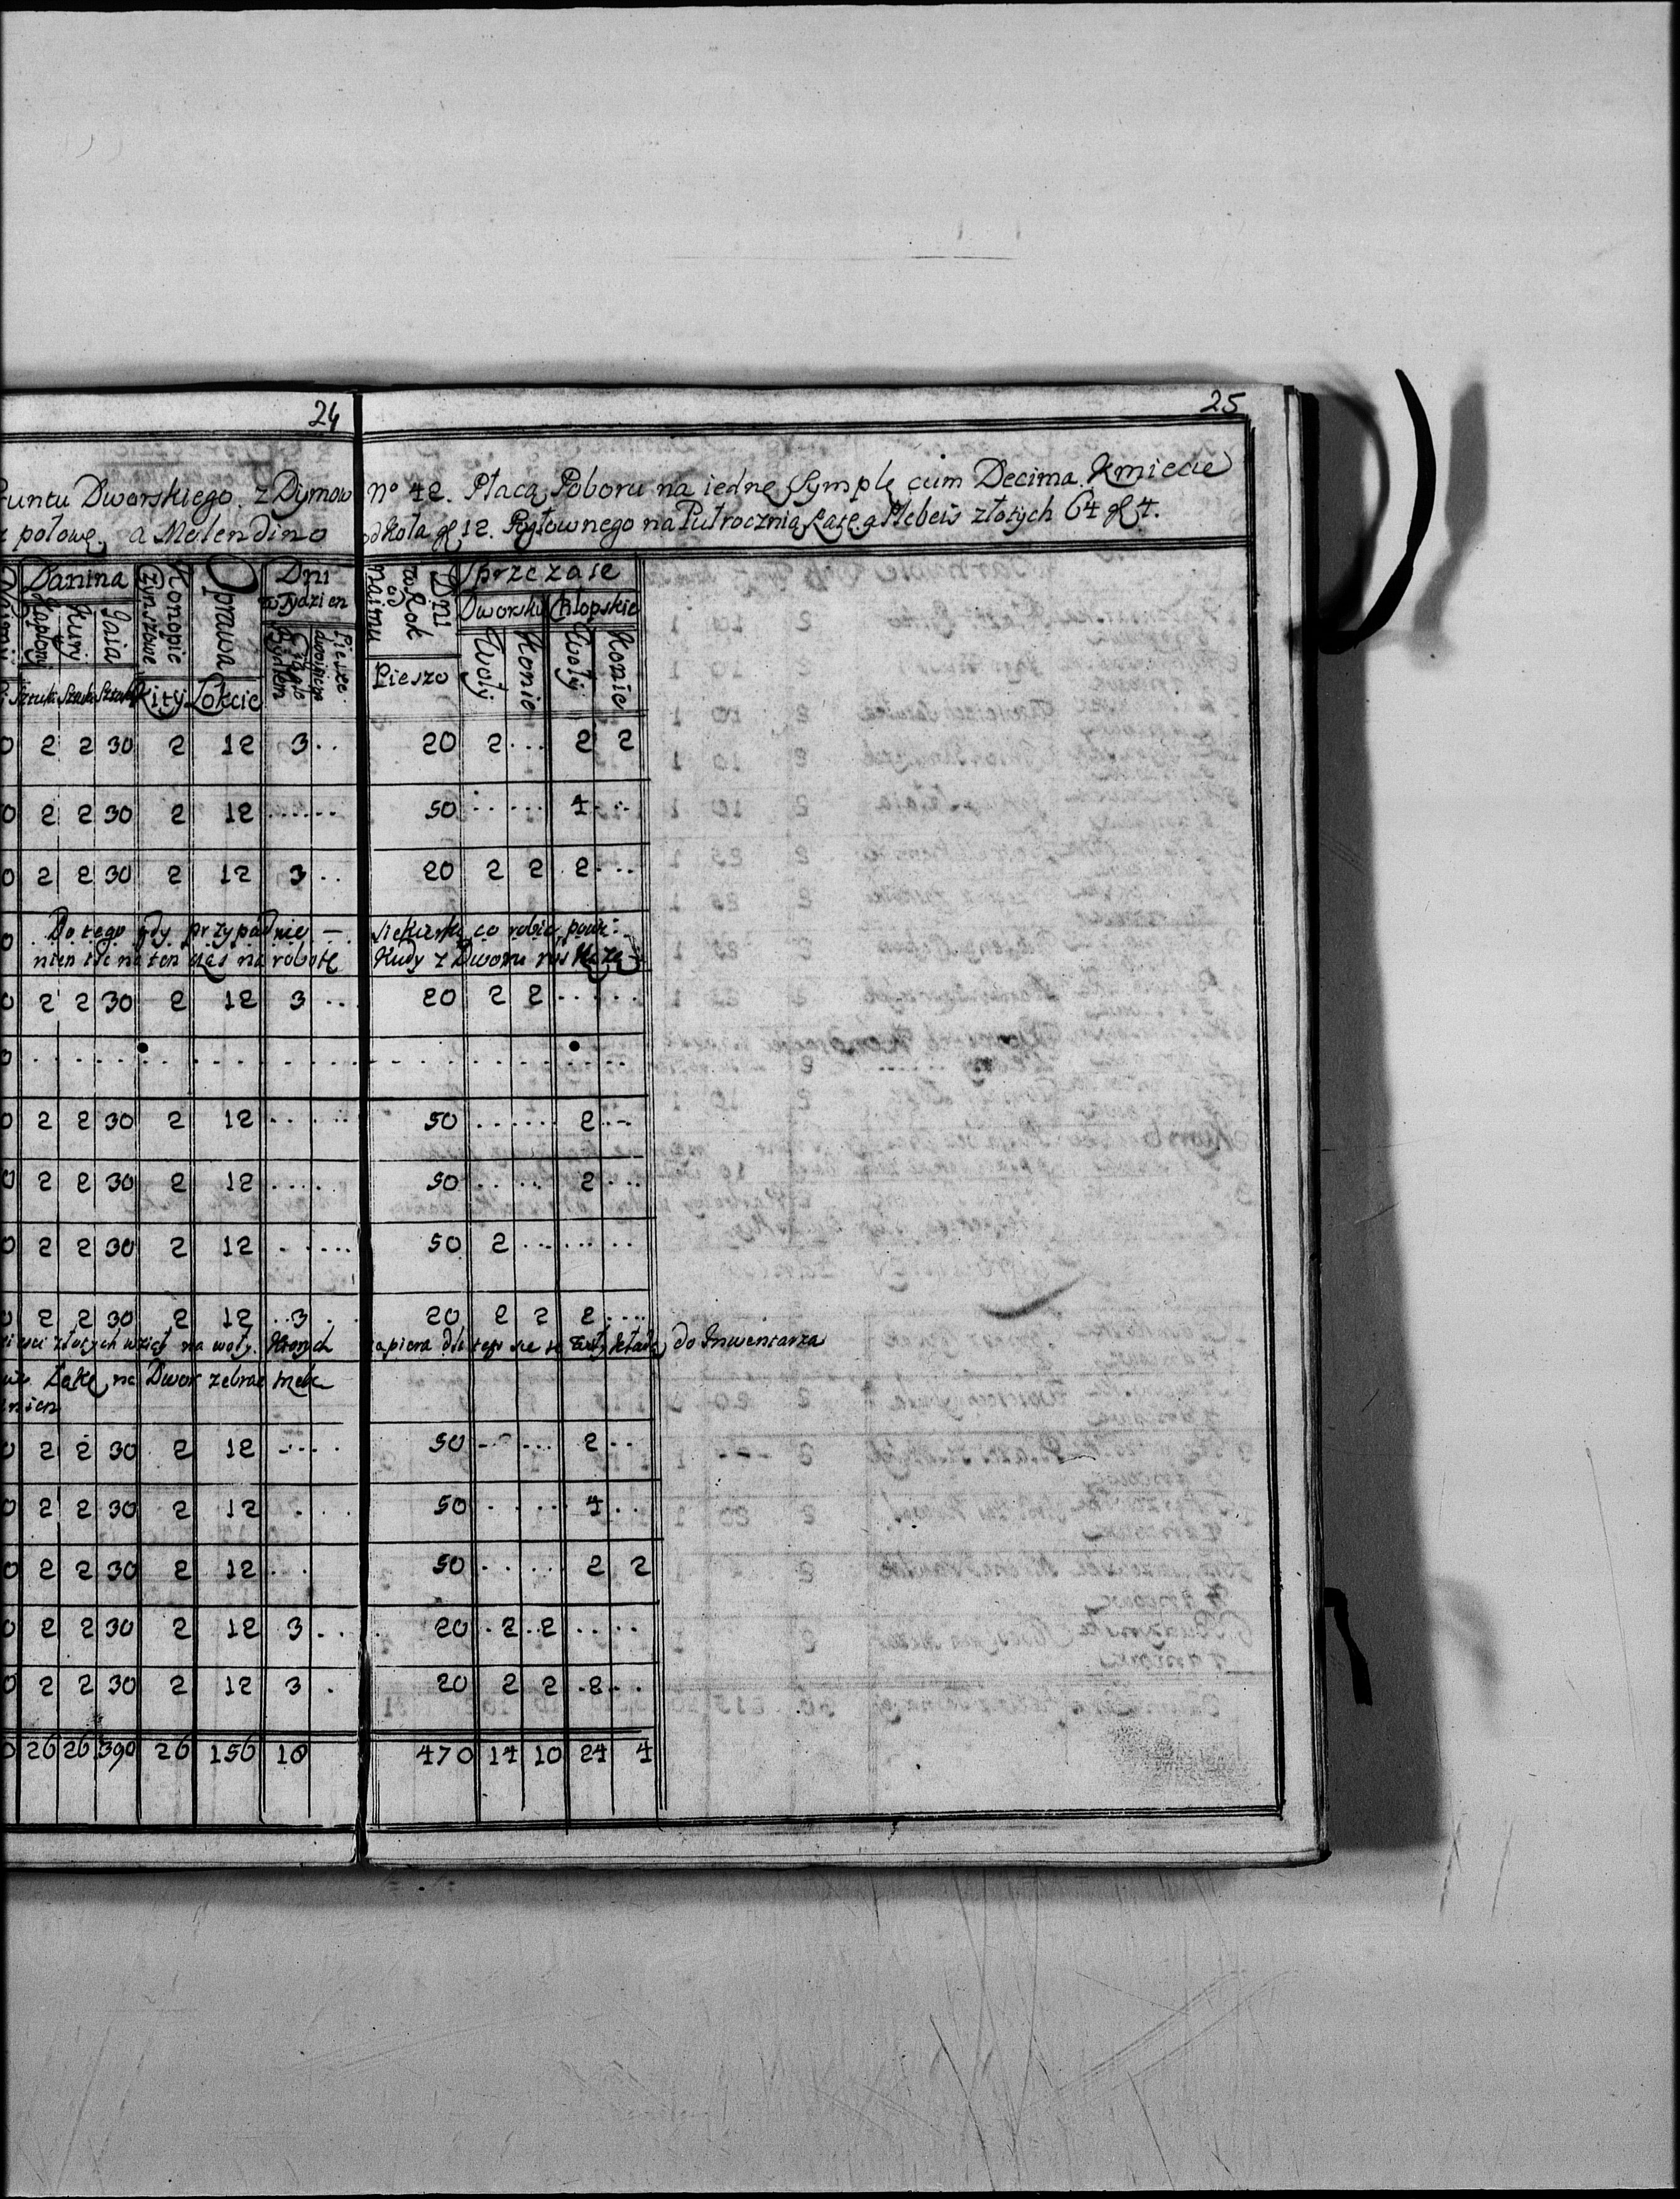 24
25
Gruntu Dworskiego. z Dymow N° 42. Płacą Poboru na iednę Symplę cum Decima. Kmiecie
połowę. a Molendino od Koła gr 12. Pogłownego na Pułrocznią Ratę a Plebeis złotych 64 gr 4.
Danina Konopie Czynszowe Oprawa Dni w Tydzien Dni w Rok od naimu Sprzezaie
Kapłony Kury Jaia Ciągło Bydłem Pieszo Dworskie Chłopskie
Woły Konie Woły Konie
Sztuki Sztuki Sztuki Kity Łokcie Pieszo
0 2 2 30 2 12 3 .. 20 2 ... 2 2
0 2 2 30 2 12 ...... 50 ..... 4 ...
0 2 2 30 2 12 3 .. 20 2 2 2 ...
0 Do tego gdy przypadnie — co robią powi:
nien iść na ten czas na robotę Kudy z Dworu
0 2 2 30 2 12 3 ... 20 2 2 .....
0
0 2 2 30 2 12 ..... 50 ...... 2 ...
0 2 2 30 2 12 .... 50 ..... 2 ...
0 2 2 30 2 12 ..... 50 2 .......
0 2 2 30 2 12 3 .. 20 2 2 2 ....
złotych wziął na woły. Ktorych zapiera dla tego się te do Inwentarza
Łąkę na Dwor zebrac
0 2 2 30 2 12 .... 50 ..... 2 ..
0 2 2 30 2 12 ... 50 ..... 4 ..
0 2 2 30 2 12 .. 50 .... 2 2
0 2 2 30 2 12 3 .. 20 2 2 ....
0 2 2 30 2 12 3 . 20 2 2 2 ..
0 26 26 390 26 156 18 470 14 10 24 4